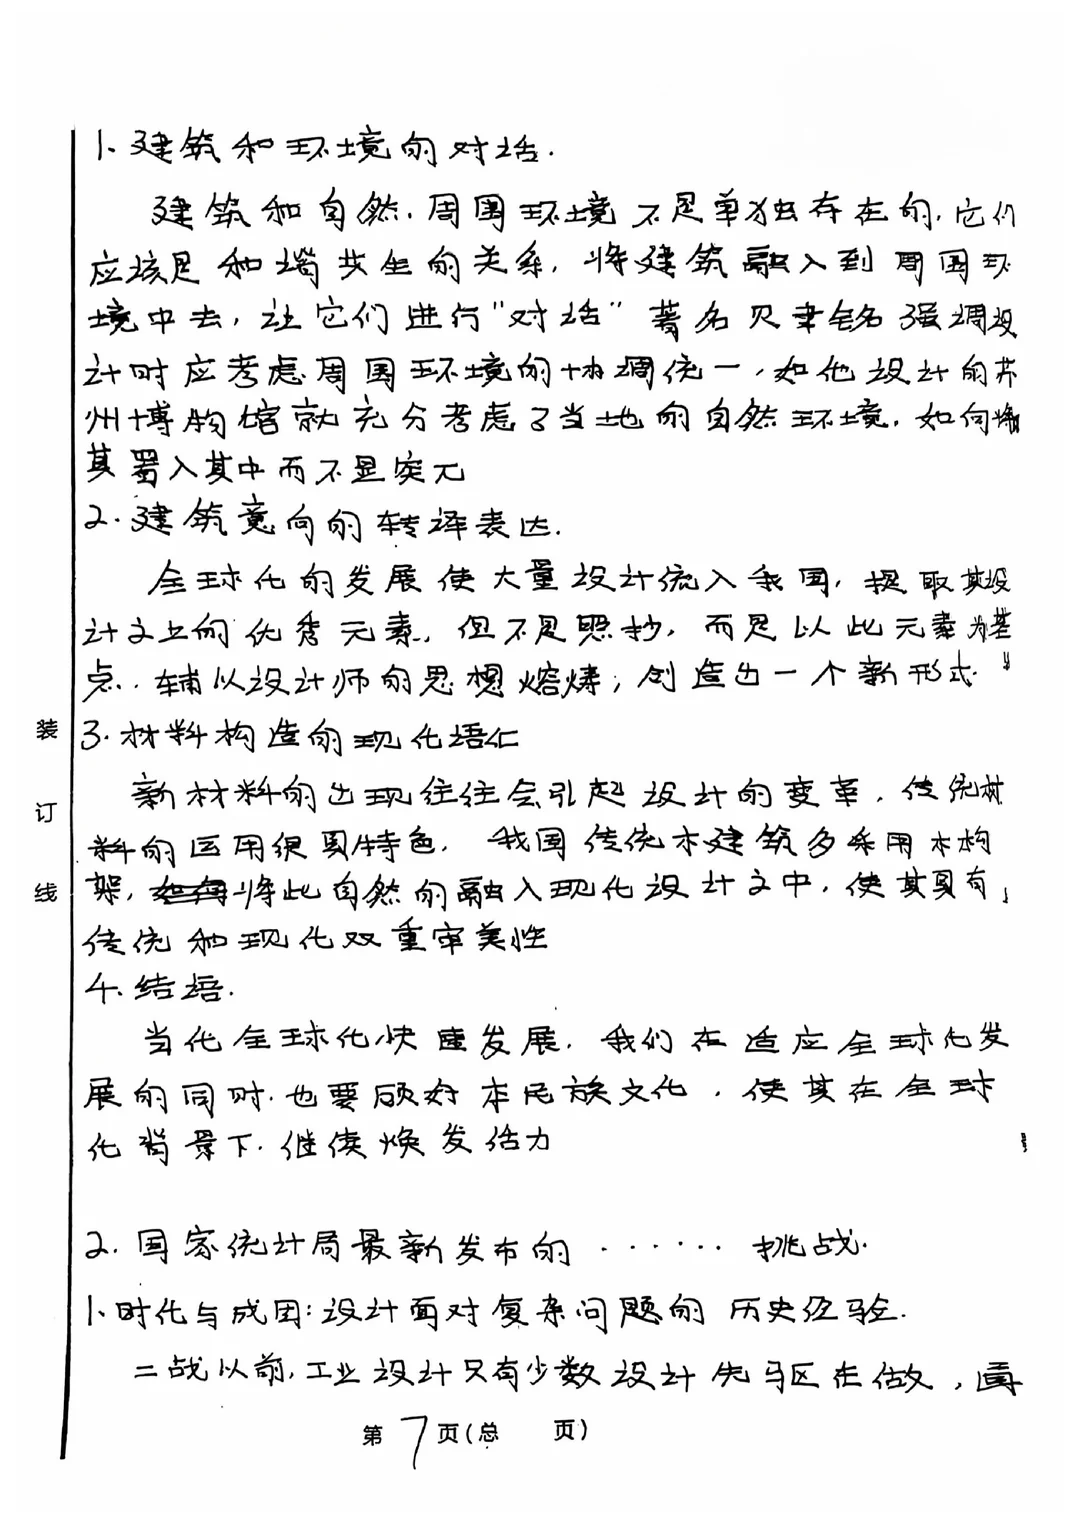 1. 建筑和环境的对话.
建筑和自然.周围环境不是单独存在的,它们
应该是和谐共生的关系,将建筑融入到周围环
境中去,让它们进行"对话"著名贝聿铭强调设
计时应考虑周围环境的协调统一,如他设计的苏
州博物馆就充分考虑了当地的自然环境,如何将
其置入其中而不显突兀
2.建筑意向的转译表达.
全球化的发展使大量设计流入我国,提取其设
计之上的优秀元素,但不是照抄,而是以此元素为基
点.辅以设计师的思想熔铸,创造出一个新形式
3.材料构造的现代语汇
新材料的出现往往会引起设计的变革,传统材
料的运用很具特色,我国传统木建筑多采用木构
架,将此自然的融入现代设计之中,使其具有
传统和现代双重审美性
4.结语.
当代全球化快速发展,我们在适应全球化发
展的同时.也要顾好本民族文化,使其在全球
化背景下.继续焕发活力
2.国家统计局最新发布的 ······ 挑战.
1.时代与成因:设计面对复杂问题的历史经验.
二战以前,工业设计只有少数设计先驱在做,
装
订
线
第7页(总 页)